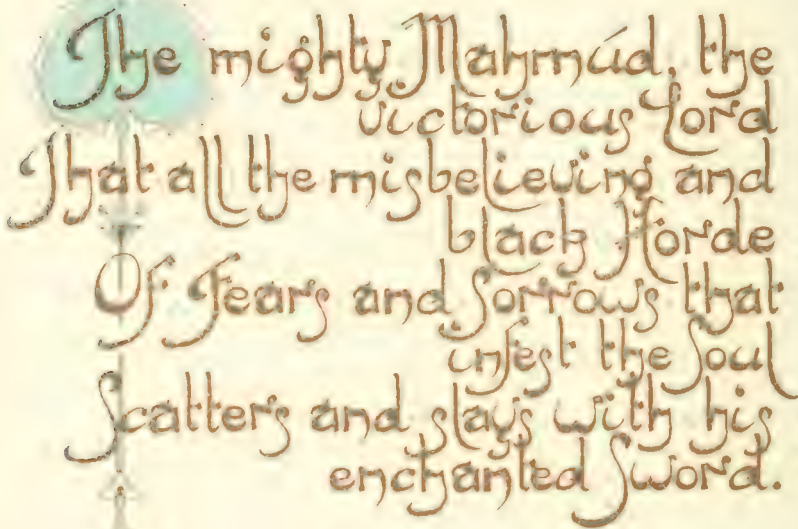 The mighty Mahmúd, the
victorious Lord
That all the misbelieving and
black Horde
Of Fears and Sorrows that
infest the Soul
Scatters and slays with his
enchanted Sword.